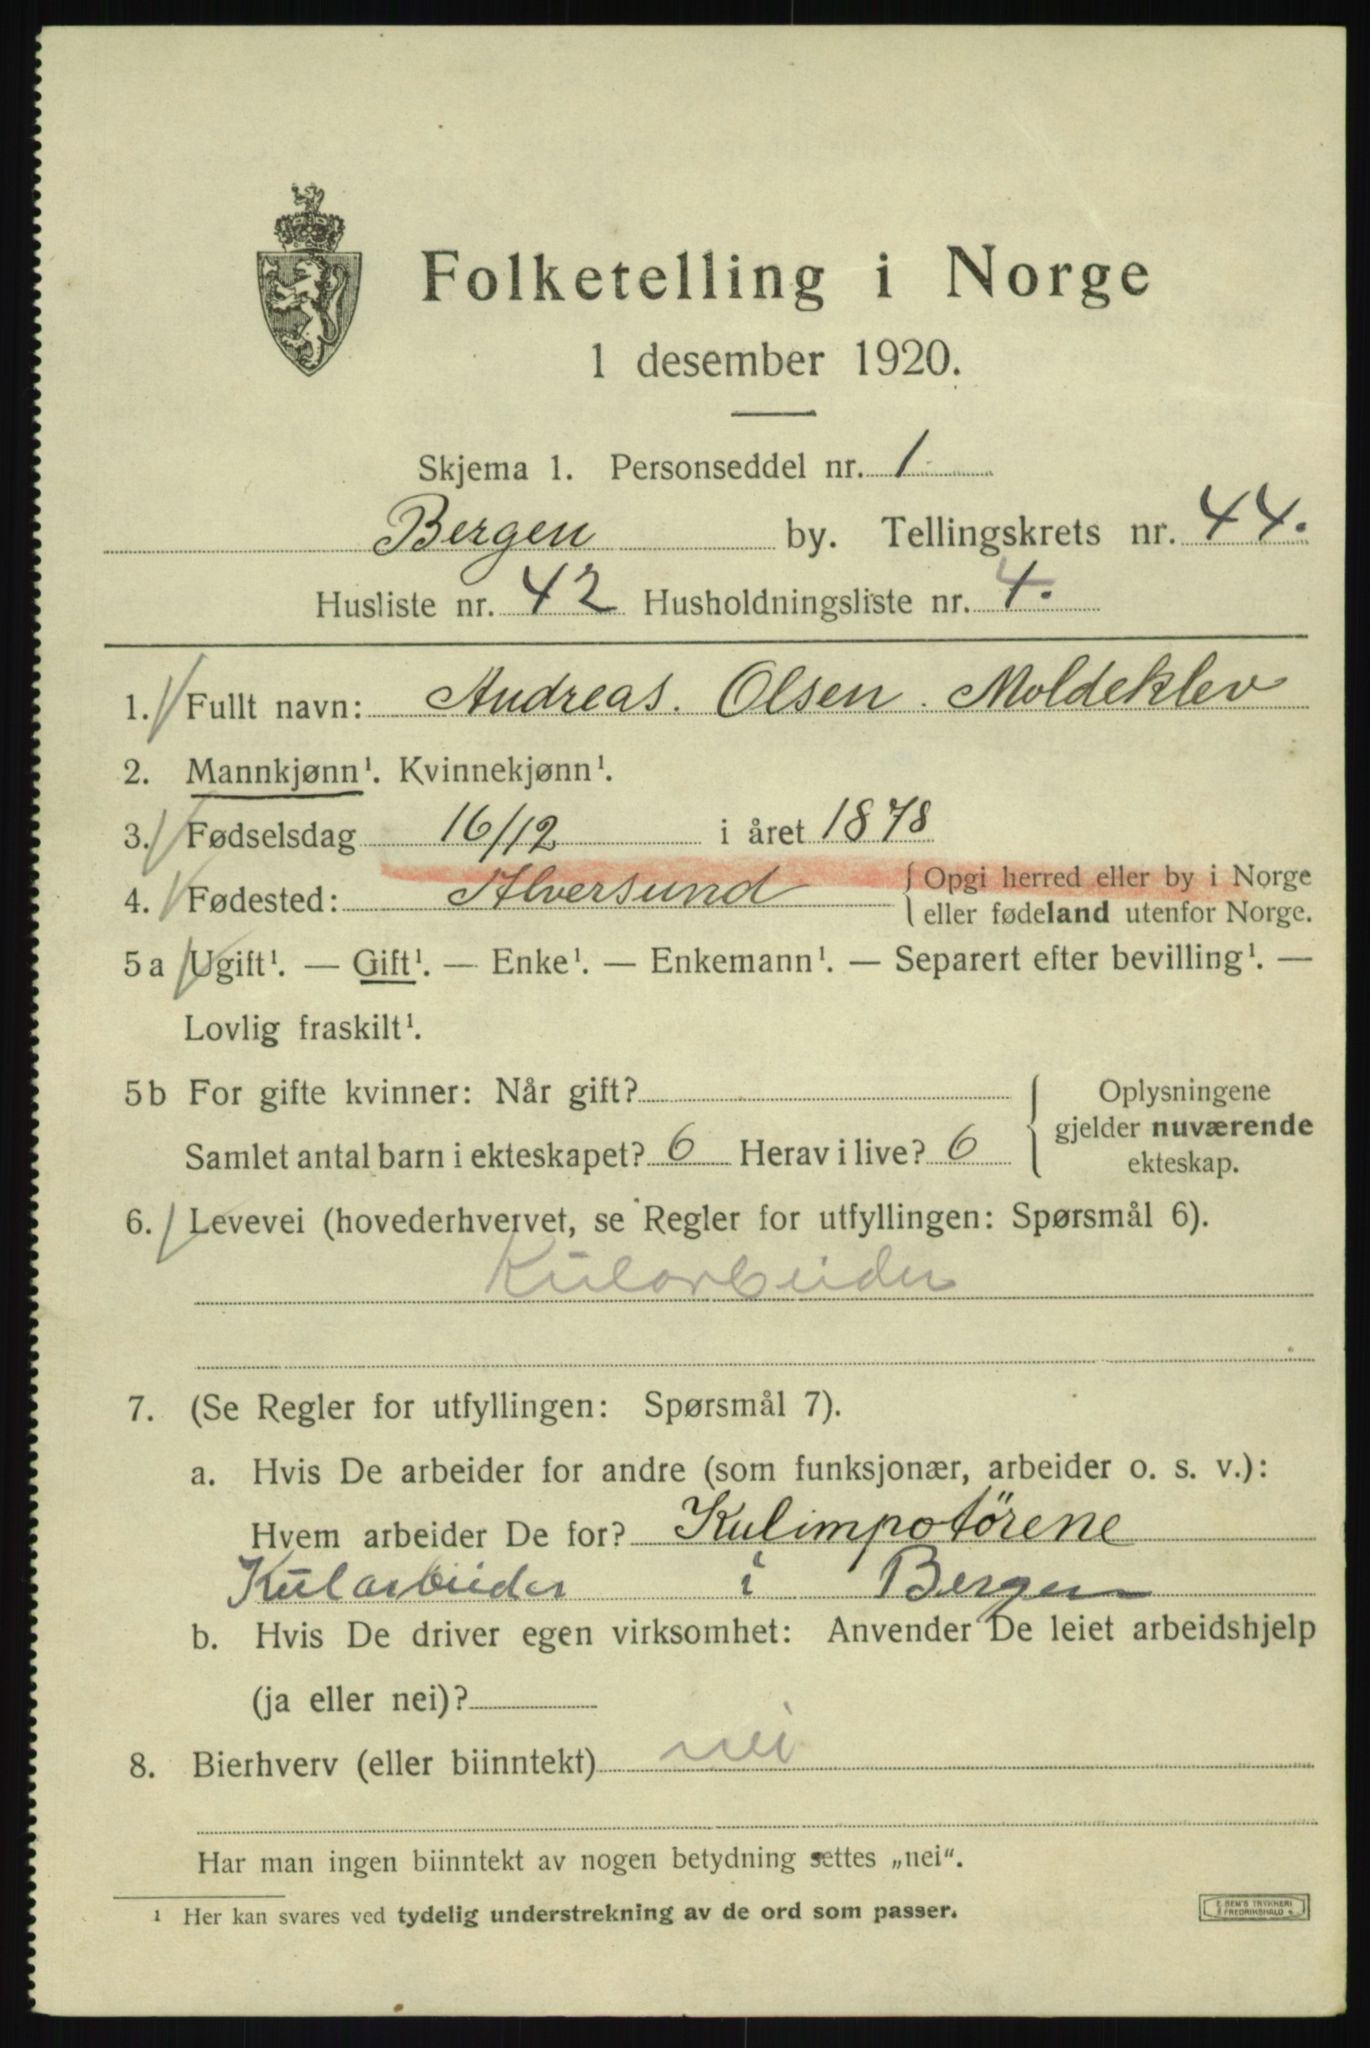 Folketelling i Norge
1 desember 1920.
Skjema 1. Personseddel nr. 1
Bergen by. Tellingskrets nr. 44.
Husliste nr. 42 Husholdningsliste nr. 4.
1. Fullt navn: Andreas. Olsen. Moldeklev
2. Mannkjønn¹. Kvinnekjønn¹.
3. Fødselsdag 16/12 i året 1878
4. Fødested: Alversund { Opgi herred eller by i Norge
eller fødeland utenfor Norge.
5 a Ugift¹. — Gift¹. — Enke¹. — Enkemann¹. — Separert efter bevilling¹. —
Lovlig fraskilt¹.
5 b For gifte kvinner: Når gift? { Oplysningene
gjelder nuværende
ekteskap.
Samlet antal barn i ekteskapet? 6 Herav i live? 6
6. Levevei (hovederhvervet, se Regler for utfyllingen: Spørsmål 6).
Kularbeider
7. (Se Regler for utfyllingen: Spørsmål 7).
a. Hvis De arbeider for andre (som funksjonær, arbeider o. s. v.):
Hvem arbeider De for? Kulimpotørene
Kularbeider i Bergen
b. Hvis De driver egen virksomhet: Anvender De leiet arbeidshjelp
(ja eller nei)?
8. Bierhverv (eller biinntekt) nei
Har man ingen biinntekt av nogen betydning settes „nei“.
¹ Her kan svares ved tydelig understrekning av de ord som passer.
E SEM'S TRYKKERI
FREDRIKSHALD